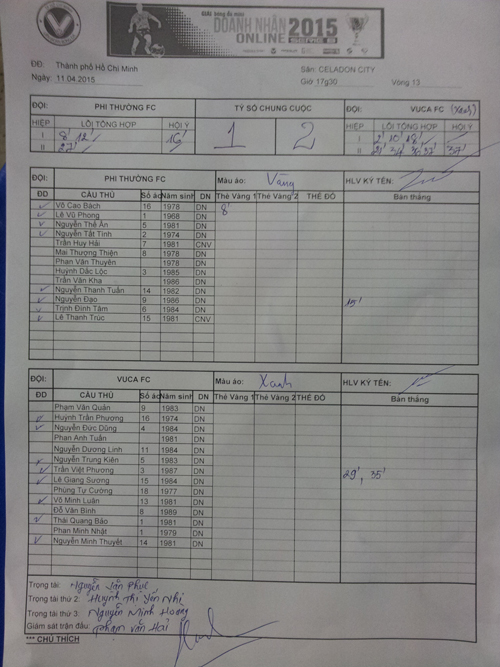 GIẢI bóng đá mini
DOANH NHÂN 2015
ONLINE
ĐĐ: Thành phố Hồ Chí Minh Sân: CELADON CITY
Ngày 11.04.2015 Giờ 17g30 Vòng 13
ĐỘI: PHI THƯỜNG FC TỶ SỐ CHUNG CUỘC ĐỘI: VUCA FC (Xanh)
HIỆP LỖI TỔNG HỢP HỘI Ý 1 2 HIỆP LỖI TỔNG HỢP HỘI Ý
I 8' 12' 16' I 2' 10' 18'
II 27' II 21' 34' 36' 37' 37'
ĐỘI: PHI THƯỜNG FC Màu áo: Vàng HLV KÝ TÊN:
ĐD CẦU THỦ Số áo Năm sinh DN Thẻ Vàng 1 Thẻ Vàng 2 THẺ ĐỎ Bàn thắng
Võ Cao Bách 16 1978 DN 8'
Lê Vũ Phong 1 1968 DN
Nguyễn Thế Ân 5 1981 DN
Nguyễn Tất Tính 2 1974 DN
Trần Huy Hải 7 1981 CNV
Mai Thượng Thiện 8 1978 DN
Phan Văn Thuyên 1978 DN
Huỳnh Dắc Lộc 3 1985 DN
Trần Văn Kha 1986 DN
Nguyễn Thanh Tuấn 14 1982 DN
Nguyễn Đạo 9 1986 DN 15'
Trịnh Đình Tâm 6 1984 DN
Lê Thanh Trúc 15 1981 CNV
ĐỘI: VUCA FC Màu áo: Xanh HLV KÝ TÊN:
ĐD CẦU THỦ Số áo Năm sinh DN Thẻ Vàng 1 Thẻ Vàng 2 THẺ ĐỎ Bàn thắng
Phạm Văn Quân 9 1983 DN
Huỳnh Trần Phượng 16 1974 DN
Nguyễn Đức Dũng 4 1984 DN
Phan Anh Tuấn 1981 DN
Nguyễn Dương Linh 11 1984 DN
Nguyễn Trung Kiên 5 1983 DN
Trần Việt Phương 3 1987 DN 29', 35'
Lê Giang Sương 15 1984 DN
Phùng Tự Cường 18 1977 DN
Võ Minh Luân 13 1981 DN
Đỗ Văn Bình 8 1989 DN
Thái Quang Bảo 1 1981 DN
Phan Minh Nhật 1 1979 DN
Nguyễn Minh Thuyết 14 1981 DN
Trọng tài: Nguyễn Tấn Phúc
Trọng tài thứ 2: Huỳnh Thị Yến Nhi
Trọng tài thứ 3: Nguyễn Minh Hoàng
Giám sát trận đấu: Phạm Văn Hai
*** CHÚ THÍCH